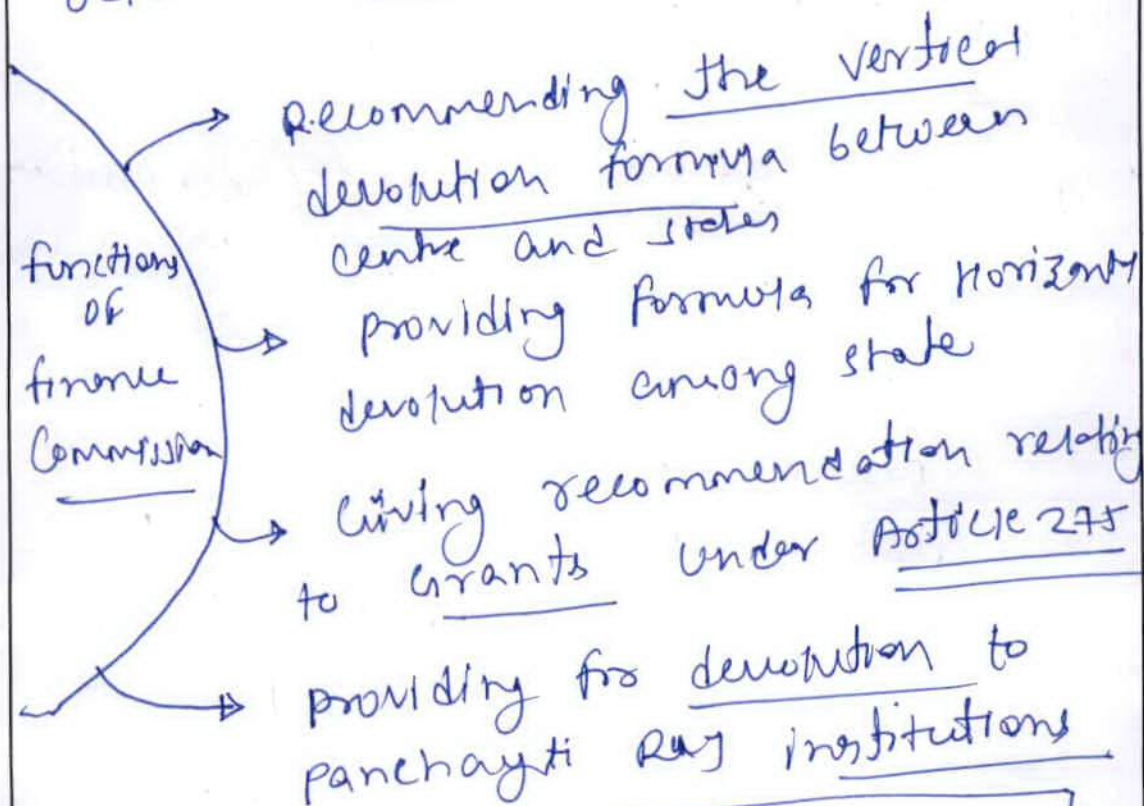 functions
of
finance
Commission
Recommending the vertical
devolution formula between
centre and states
providing formula for Horizontal
devolution among state
Giving recommendation relating
to Grants under Article 275
providing for devolution to
panchayti Raj institutions